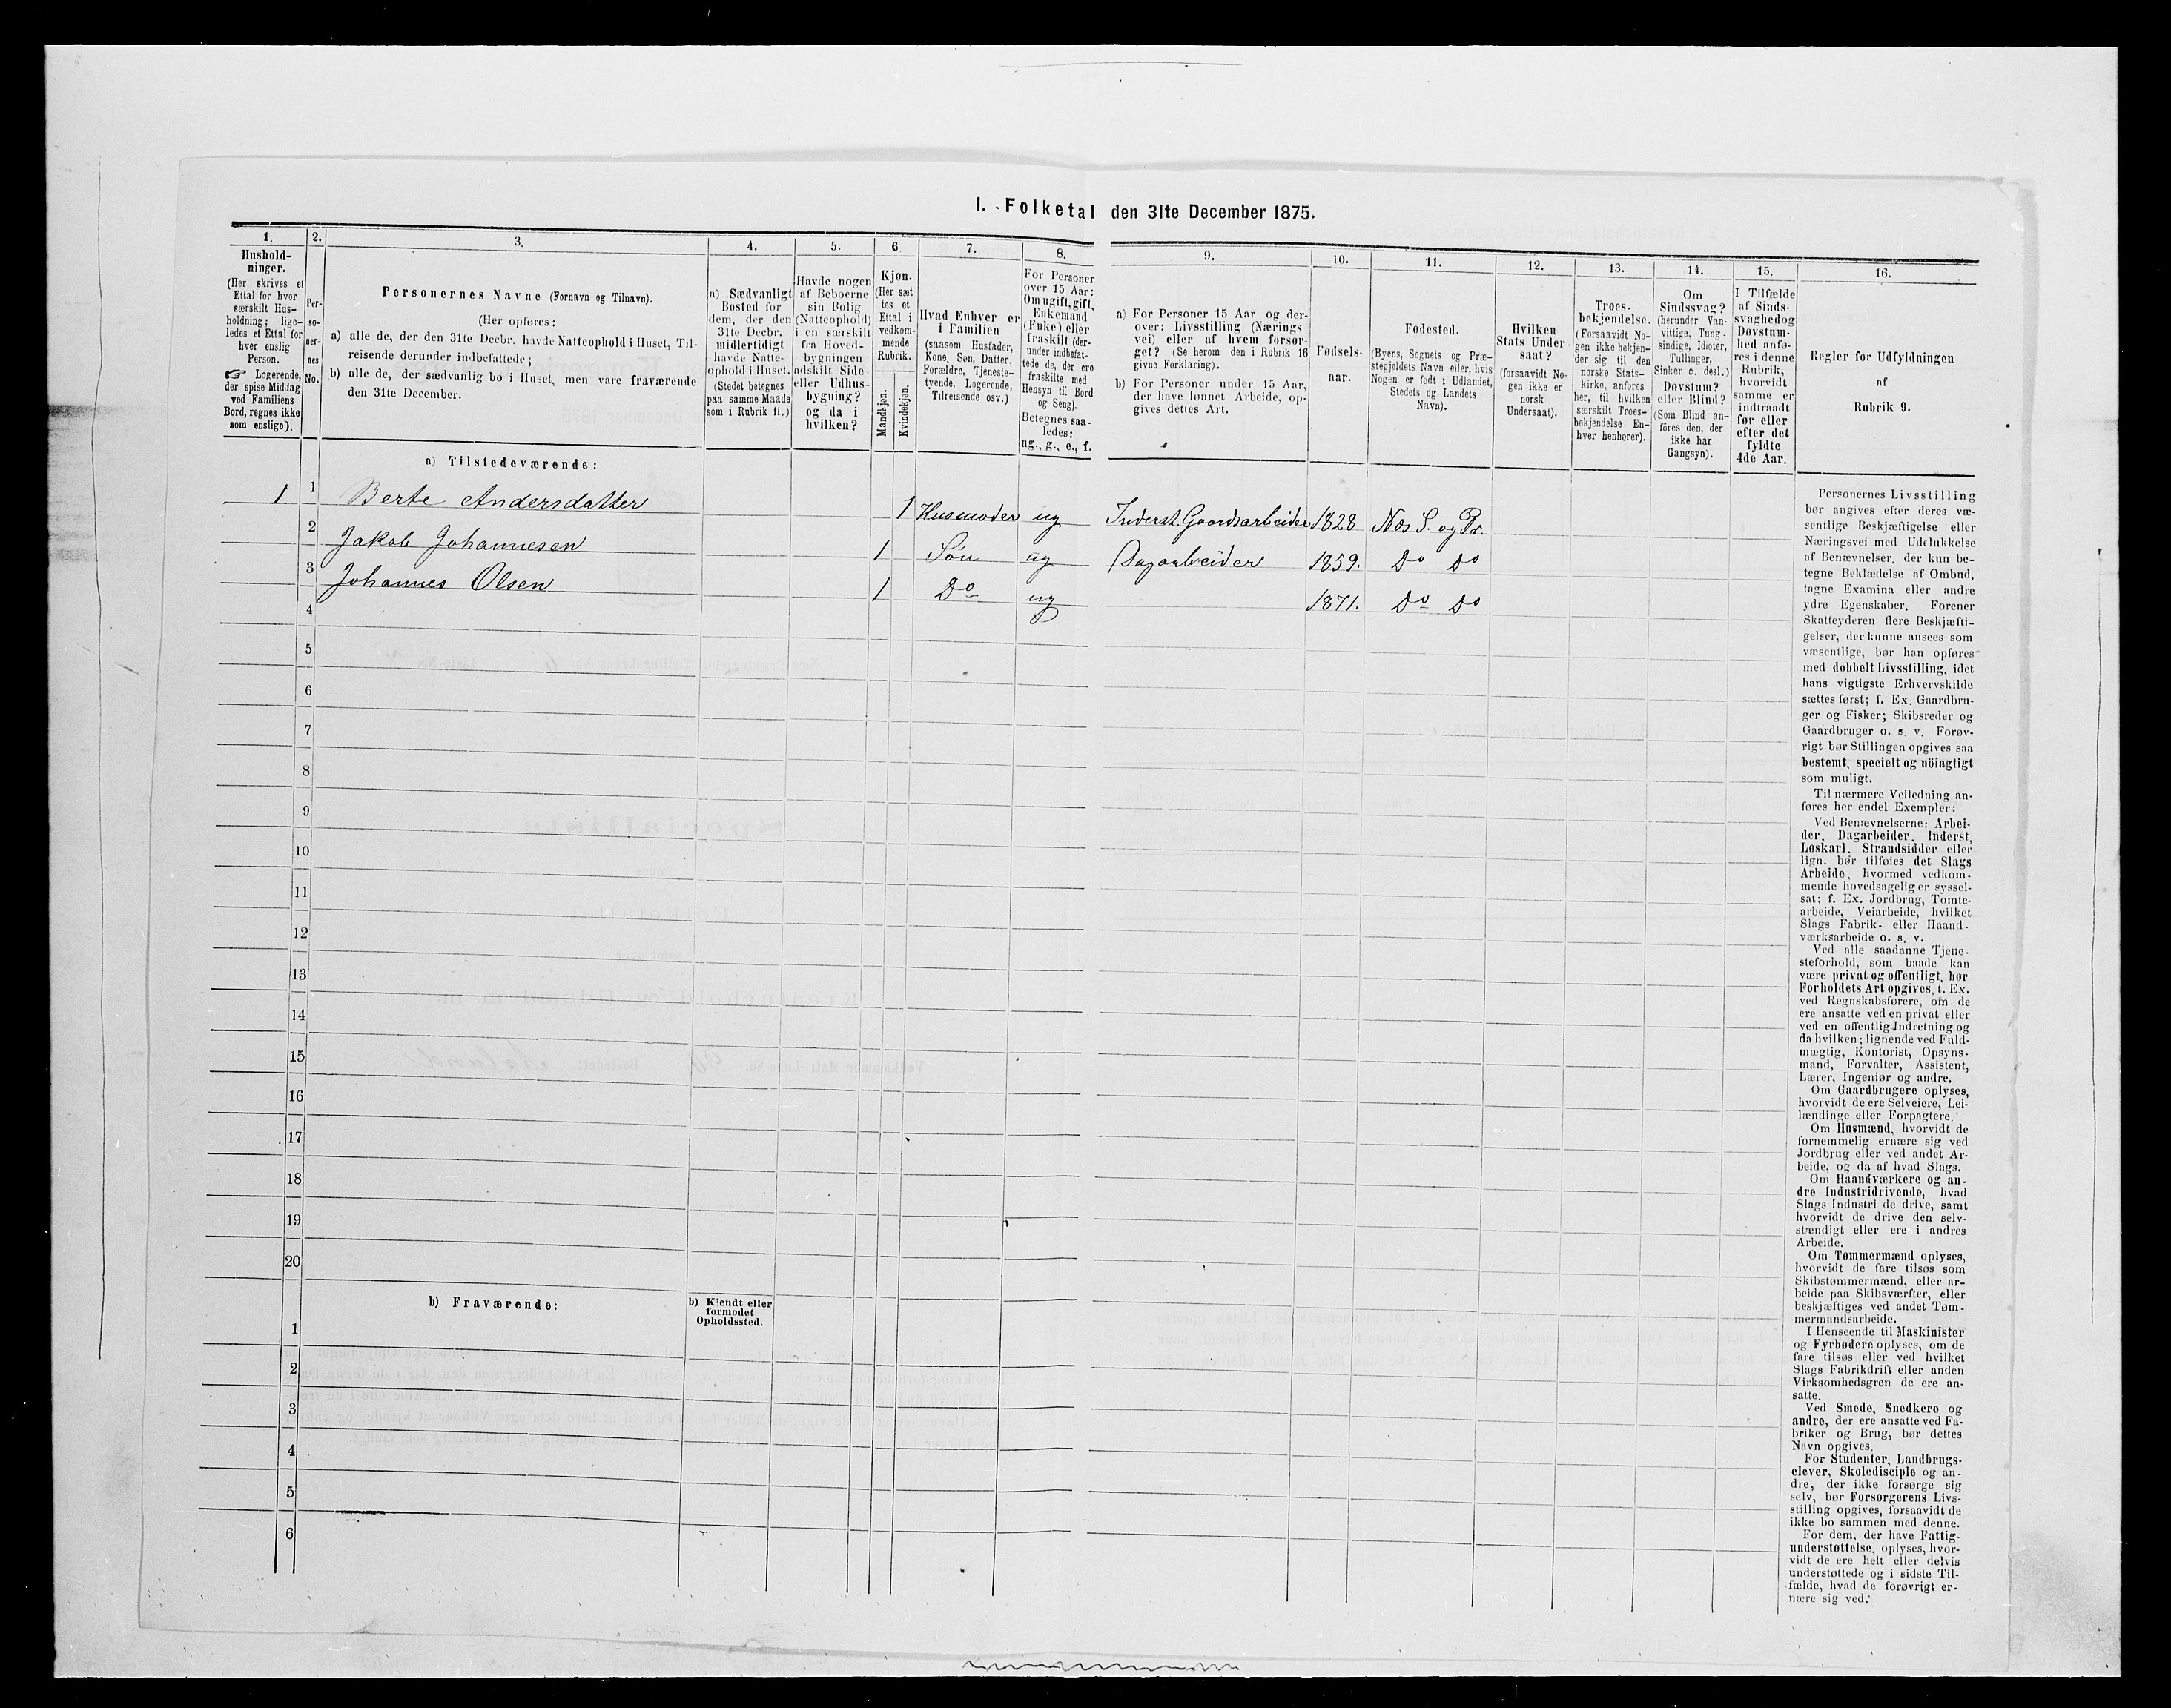 1. Folketal den 31te December 1875.
1.
Hushold-
ninger.
(Her skrives et
Ettal for hver
særskilt Hus-
holdning; lige-
ledes et Ettal for
hver enslig
Person.
☞ Logerende,
der spise Middag
ved Familiens
Bord, regnes ikke
som enslige).
2.
Per-
so-
ner-
nes
No.
3.
Personernes Navne (Fornavn og Tilnavn).
(Her opføres:
a) alle de, der den 31te Decbr. havde Natteophold i Huset, Til-
reisende derunder indbefattede;
b) alle de, der sædvanlig bo i Huset, men vare fraværende
den 31te December.
4.
a) Sædvanligt
Bosted for
dem, der den
31te Decbr.
midlertidigt
havde Natte-
ophold i Huset.
(Stedet betegnes
paa samme Maade
som i Rubrik 11.)
5.
Havde nogen
af Beboerne
sin Bolig
(Natteophold)
i en særskilt
fra Hoved-
bygningen
adskilt Side-
eller Udhus-
bygning?
og da i
hvilken?
6
Kjøn.
(Her sæt
tes et
Ettal i
vedkom-
mende
Rubrik.
Mandkjøn.
Kvindekjøn.
7.
Hvad Enhver er
i Familien
(saasom Husfader,
Kone, Søn, Datter,
Forældre, Tjeneste-
tyende, Logerende,
Tilreisende osv.)
8.
For Personer
over 15 Aar:
Om ugift, gift,
Enkemand
(Enke) eller
fraskilt (der-
under indbefat-
tede de, der ere
fraskilte med
Hensyn til Bord
og Seng).
Betegnes saa-
ledes:
ug., g., e., f.
9.
a) For Personer 15 Aar og der-
over: Livsstilling (Nærings
vei) eller af hvem forsør-
get? (Se herom den i Rubrik 16
givne Forklaring).
b) For Personer under 15 Aar,
der have lønnet Arbeide, op-
gives dettes Art.
10.
Fødsels-
aar.
11.
Fødested.
(Byens, Sognets og Præ-
stegjeldets Navn eller, hvis
Nogen er født i Udlandet,
Stedets og Landets
Navn).
12.
Hvilken
Stats Under
saat?
(forsaavidt No-
gen ikke er
norsk
Undersaat).
13.
Troes-
bekjendelse.
(Forsaavidt No-
gen ikke bekjen-
der sig til den
norske Stats-
kirke, anføres
her, til hvilken
særskilt Troes-
bekjendelse En-
hver henhører).
14.
Om
Sindssvag?
(herunder Van-
vittige, Tung-
sindige, Idioter,
Tullinger,
Sinker o. desl.)
Døvstum?
eller Blind?
(Som Blind an-
føres den, der
ikke har
Gangsyn).
15.
I Tilfælde
af Sinds-
svaghedog
Døvstum-
hed anfø-
res i denne
Rubrik,
hvorvidt
samme er
indtraadt
før eller
efter det
fyldte
4de Aar.
16.
Regler for Udfyldningen
af
Rubrik 9.
a) Tilstedeværende:
1 1 Berte Andersdatter 1 Husmoder ug Inderst. Gaardsarbeider 1828 Næs S. og Pr.
2 Jakob Johannesen 1 Søn ug Dagarbeider 1859. Do Do
3 Johannes Olsen 1 Do ug 1871. Do Do
4
5
6
7
8
9
10
11
12
13
14
15
16
17
18
19
20
b) Fraværende:
b) Kjendt eller
formodet
Opholdssted.
1
2
3
4
5
6
Personernes Livsstilling
bør angives efter deres væ-
sentlige Beskjæftigelse eller
Næringsvei med Udelukkelse
af Benævnelser, der kun be-
tegne Beklædelse af Ombud,
tagne Examina eller andre
ydre Egenskaber. Forener
Skatteyderen flere Beskjæfti-
gelser, der kunne ansees som
væsentlige, bør han opføres
med dobbelt Livsstilling, idet
hans vigtigste Erhvervskilde
sættes først; f. Ex. Gaardbru-
ger og Fisker; Skibsreder og
Gaardbruger o. s. v. Forøv-
rigt bør Stillingen opgives saa
bestemt, specielt og nöiagtigt
som muligt.
Til nærmere Veiledning an-
føres her endel Exempler:
Ved Benævnelserne: Arbei-
der, Dagarbeider, Inderst,
Løskarl, Strandsidder eller
lign. bør tilføies det Slags
Arbeide, hvormed vedkom-
mende hovedsagelig er syssel-
sat; f. Ex. Jordbrug, Tomte-
arbeide, Veiarbeide, hvilket
Slags Fabrik- eller Haand-
værksarbeide o. s. v.
Ved alle saadanne Tjene-
steforhold, som baade kan
være privat og offentligt, bør
Forholdets Art opgives, t. Ex.
ved Regnskabsførere, om de
ere ansatte ved en privat eller
ved en offentlig Indretning og
da hvilken; lignende ved Fuld-
mægtig, Kontorist, Opsyns-
mand, Forvalter, Assistent,
Lærer, Ingeniør og andre.
Om Gaardbrugere oplyses,
hvorvidt de ere Selveiere, Lei-
lændinge eller Forpagtere.
Om Husmænd, hvorvidt de
fornemmelig ernære sig ved
Jordbrug eller ved andet Ar-
beide, og da af hvad Slags.
Om Haandværkere og an-
dre Industridrivende, hvad
Slags Industri de drive, samt
hvorvidt de drive den selv-
stændigt eller ere i andres
Arbeide.
Om Tømmermænd oplyses,
hvorvidt de fare tilsøs som
Skibstømmermænd, eller ar-
beide paa Skibsværfter, eller
beskjæftiges ved andet Tøm-
mermandsarbeide.
I Henseende til Maskinister
og Fyrbødere oplyses, om de
fare tilsøs eller ved hvilket
Slags Fabrikdrift eller anden
Virksomhedsgren de ere an-
satte.
Ved Smede, Snedkere og
andre, der ere ansatte ved Fa-
briker og Brug, bør dettes
Navn opgives.
For Studenter, Landbrugs-
elever, Skoledisciple og an-
dre, der ikke forsørge sig
selv, bør Forsørgerens Livs-
stilling opgives, forsaavidt de
ikke bo sammen med denne.
For dem, der have Fattig-
understøttelse, oplyses, hvor-
vidt de ere helt eller delvis
understøttede og i sidste Til-
fælde, hvad de forøvrigt er-
nære sig ved.